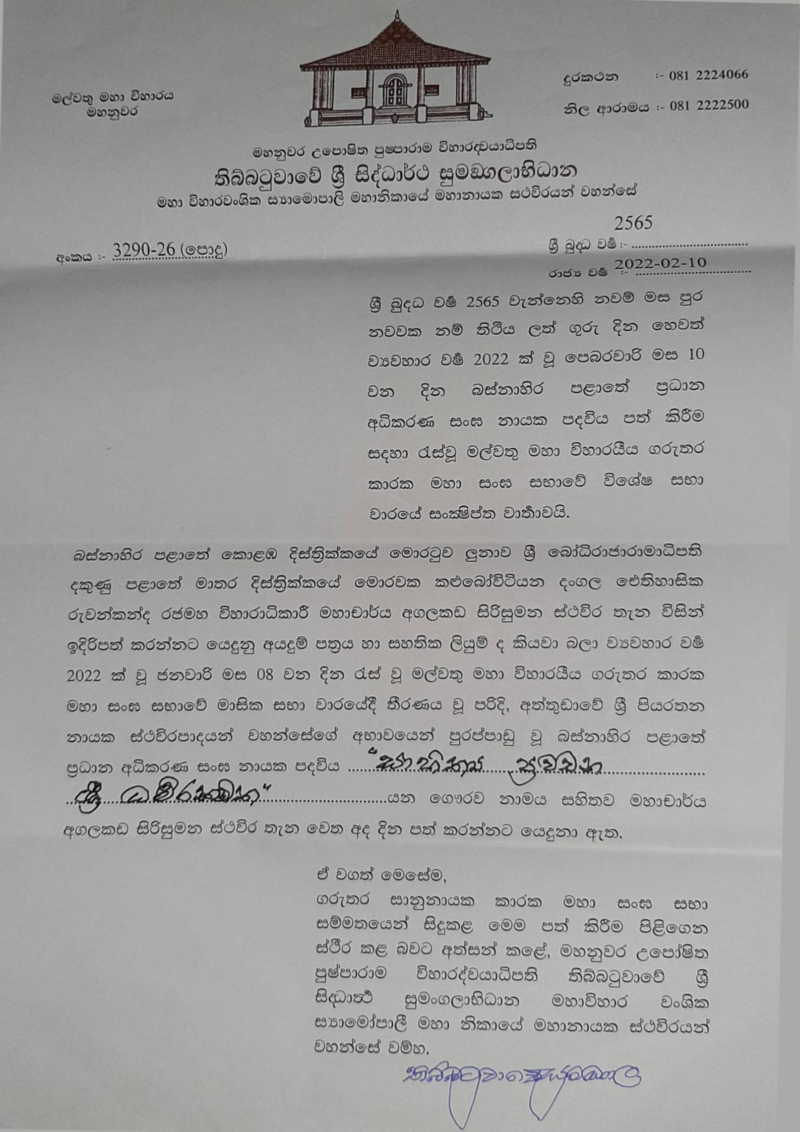 මල්වතු මහා විහාරය
මහනුවර
දුරකථන :- 081 2224066
නිල ආරාමය :- 081 2222500
මහනුවර උපොෂිත පුෂ්පාරාම විහාරද්වයාධිපති
තිබ්බටුවාවේ ශ්‍රී සිද්ධාර්ථ සුමඞ්ගලාභිධාන
මහා විහාරවංශික ස්‍යාමොපාලි මහානිකායේ මහානායක ස්ථවිරයන් වහන්සේ
අංකය :- 3290-26 (පොදු)
ශ්‍රී බුද්ධ වර්ෂ :- 2565
රාජ්‍ය වර්ෂ :- 2022-02-10
ශ්‍රී බුද්ධ වර්ෂ 2565 වැන්නෙහි නවම් මස පුර
නවවක නම් තිථිය ලත් ගුරු දින හෙවත්
ව්‍යවහාර වර්ෂ 2022 ක් වූ පෙබරවාරි මස 10
වන දින බස්නාහිර පළාතේ ප්‍රධාන
අධිකරණ සංඝ නායක පදවිය පත් කිරීම
සදහා රැස්වූ මල්වතු මහා විහාරයීය ගරුතර
කාරක මහා සංඝ සභාවේ විශේෂ සභා
වාරයේ සංක්‍ෂිප්ත වාර්තාවයි.
බස්නාහිර පළාතේ කොළඹ දිස්ත්‍රික්කයේ මොරටුව ලුනාව ශ්‍රී බෝධිරාජාරාමාධිපති
දකුණු පළාතේ මාතර දිස්ත්‍රික්කයේ මොරවක කළුබෝවිටියන දංගල ඓතිහාසික
රුවන්කන්ද රජමහ විහාරාධිකාරී මහාචාර්ය අගලකඩ සිරිසුමන ස්ථවිර තැන විසින්
ඉදිරිපත් කරන්නට යෙදුනු අයදුම් පත්‍රය හා සහතික ලියුම් ද කියවා බලා ව්‍යවහාර වර්ෂ
2022 ක් වූ ජනවාරි මස 08 වන දින රැස් වූ මල්වතු මහා විහාරයීය ගරුතර කාරක
මහා සංඝ සභාවේ මාසික සභා වාරයේදී තීරණය වූ පරිදි, අත්තුඩාවේ ශ්‍රී පියරතන
නායක ස්ථවිරපාදයන් වහන්සේගේ අභාවයෙන් පුරප්පාඩු වූ බස්නාහිර පළාතේ
ප්‍රධාන අධිකරණ සංඝ නායක පදවිය
ශ්‍රී යන ගෞරව නාමය සහිතව මහාචාර්ය
අගලකඩ සිරිසුමන ස්ථවිර තැන වෙත අද දින පත් කරන්නට යෙදුනා ඇත.
ඒ වගත් මෙසේම,
ගරුතර සානුනායක කාරක මහා සංඝ සභා
සම්මතයෙන් සිදුකළ මෙම පත් කිරීම පිළිගෙන
ස්ථීර කළ බවට අත්සන් කළේ, මහනුවර උපෝෂිත
පුෂ්පාරාම විහාරද්වයාධිපති තිබ්බටුවාවේ ශ්‍රී
සිද්ධාර්ථ සුමංගලාභිධාන මහාවිහාර වංශික
ස්‍යාමෝපාලී මහා නිකායේ මහානායක ස්ථවිරයන්
වහන්සේ වම්හ.